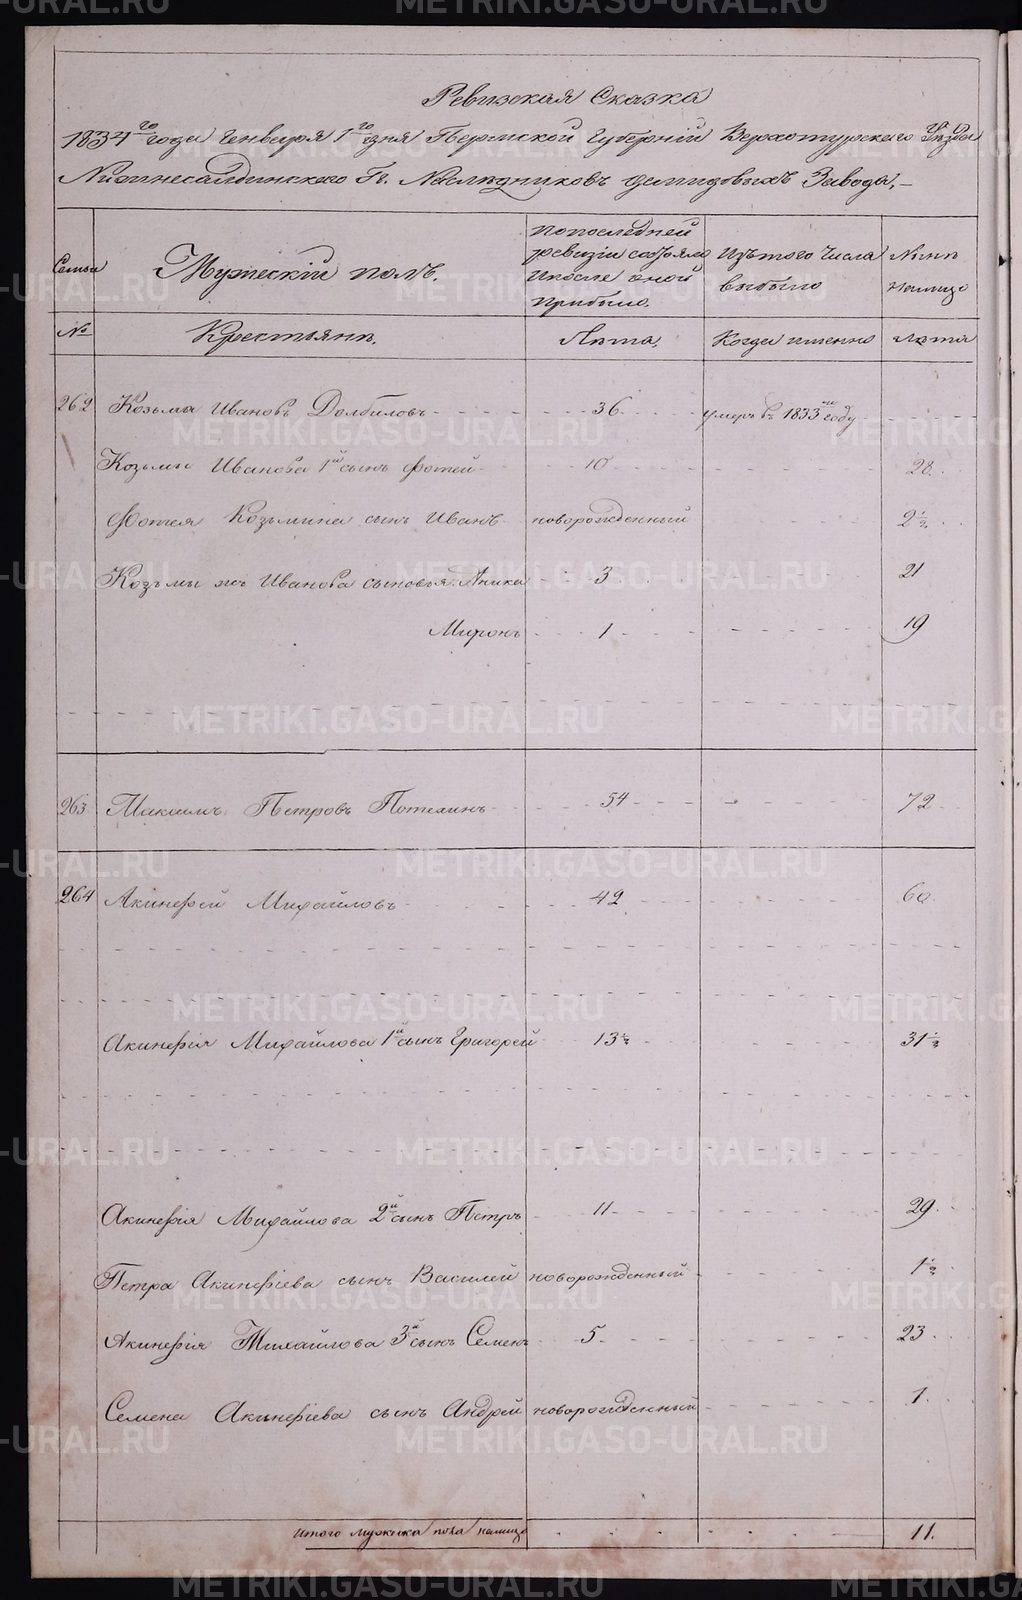 Ревизская Сказка
1834го года Генваря 1го дня Пермской Губернии Верхотурского Уезда
Нижнесалдинскаго Гг. Наследниковъ Демидовыхъ Завода,
Семьи
Мужескій полъ.
По последней ревизіи состояло и после оной прибыло.
Изъ того числа выбыло
Ныне на лицо
№
Крестьяне.
Лета.
Когда именно
Лета
262 Козьма Ивановъ Долбиловъ 36 умеръ въ 1833м году
Козьмы Иванова 1й сынъ Фотей 10 28
Фотея Козьмина сынъ Иванъ новорожденный 2 1/2
Козьмы жъ Иванова сыновья: Аника 3 21
Миронъ 1 19
263 Максимъ Петровъ Потехинъ 54 72
264 Акинфей Михайловъ 42 60
Акинфія Михайлова 1й сынъ Григорей 13 1/2 31 1/2
Акинфія Михайлова 2й сынъ Петръ 11 29
Петра Акинфіева сынъ Василей новорожденный 1 1/2
Акинфія Михайлова 3й сынъ Семенъ 5 23
Семена Акинфіева сынъ Андрей новорожденный 1
Итого мужеска пола налицо 11.
METRIKI.GASO-URAL.RU